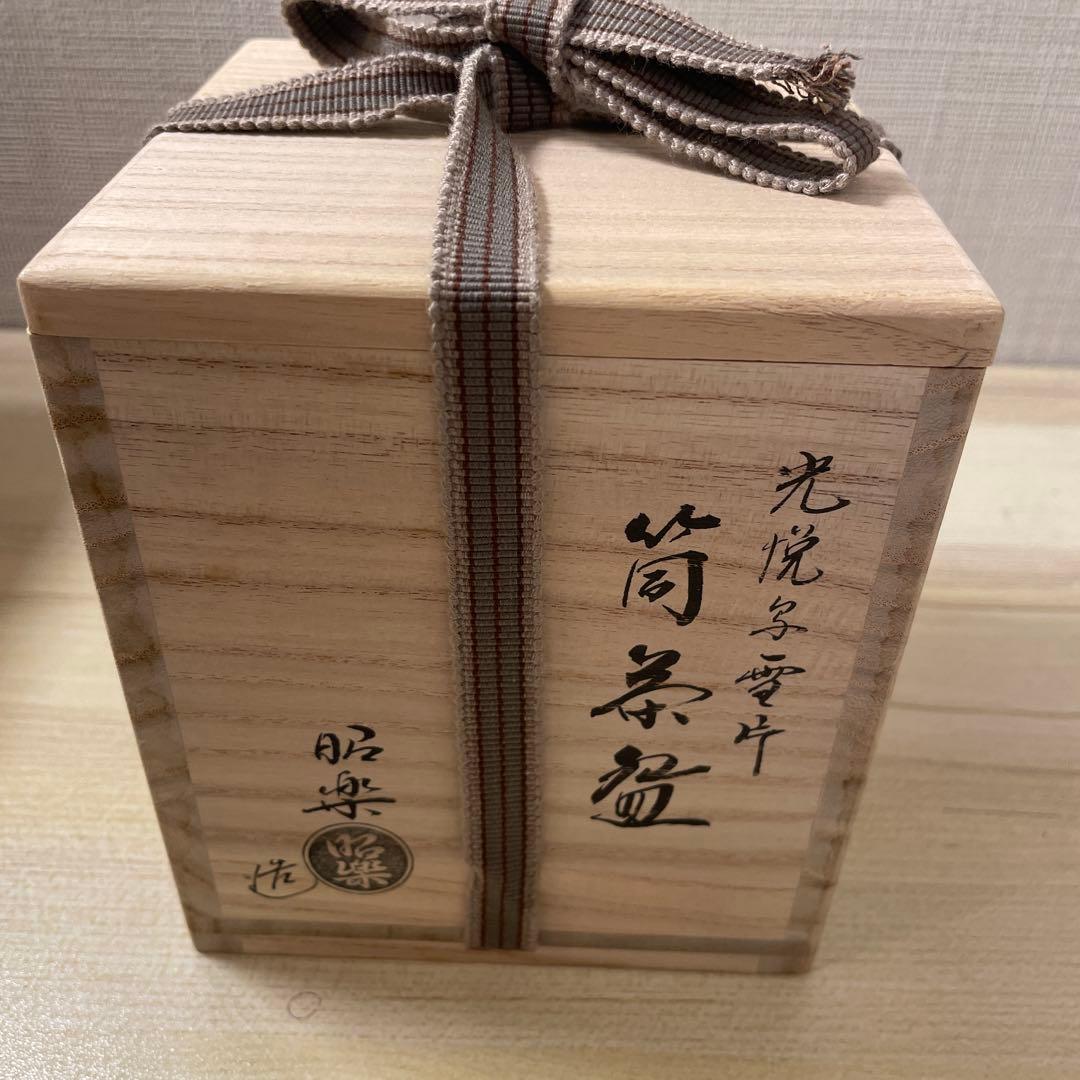 光悦写雪片
筒茶盌
昭楽
昭楽
造